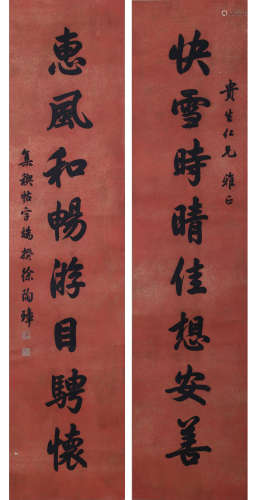 貴生仁兄雅正
快雪時晴佳想安善
惠風和暢游目騁懷
集禊帖字瑞揆徐陶璋